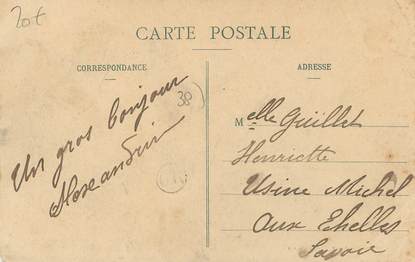 20€
CARTE POSTALE
CORRESPONDANCE
ADRESSE
38
Un gros bonjour
Alexandrin
Melle Guillet
Henriette
Usine Michel
Aux Ehelles
Savoie